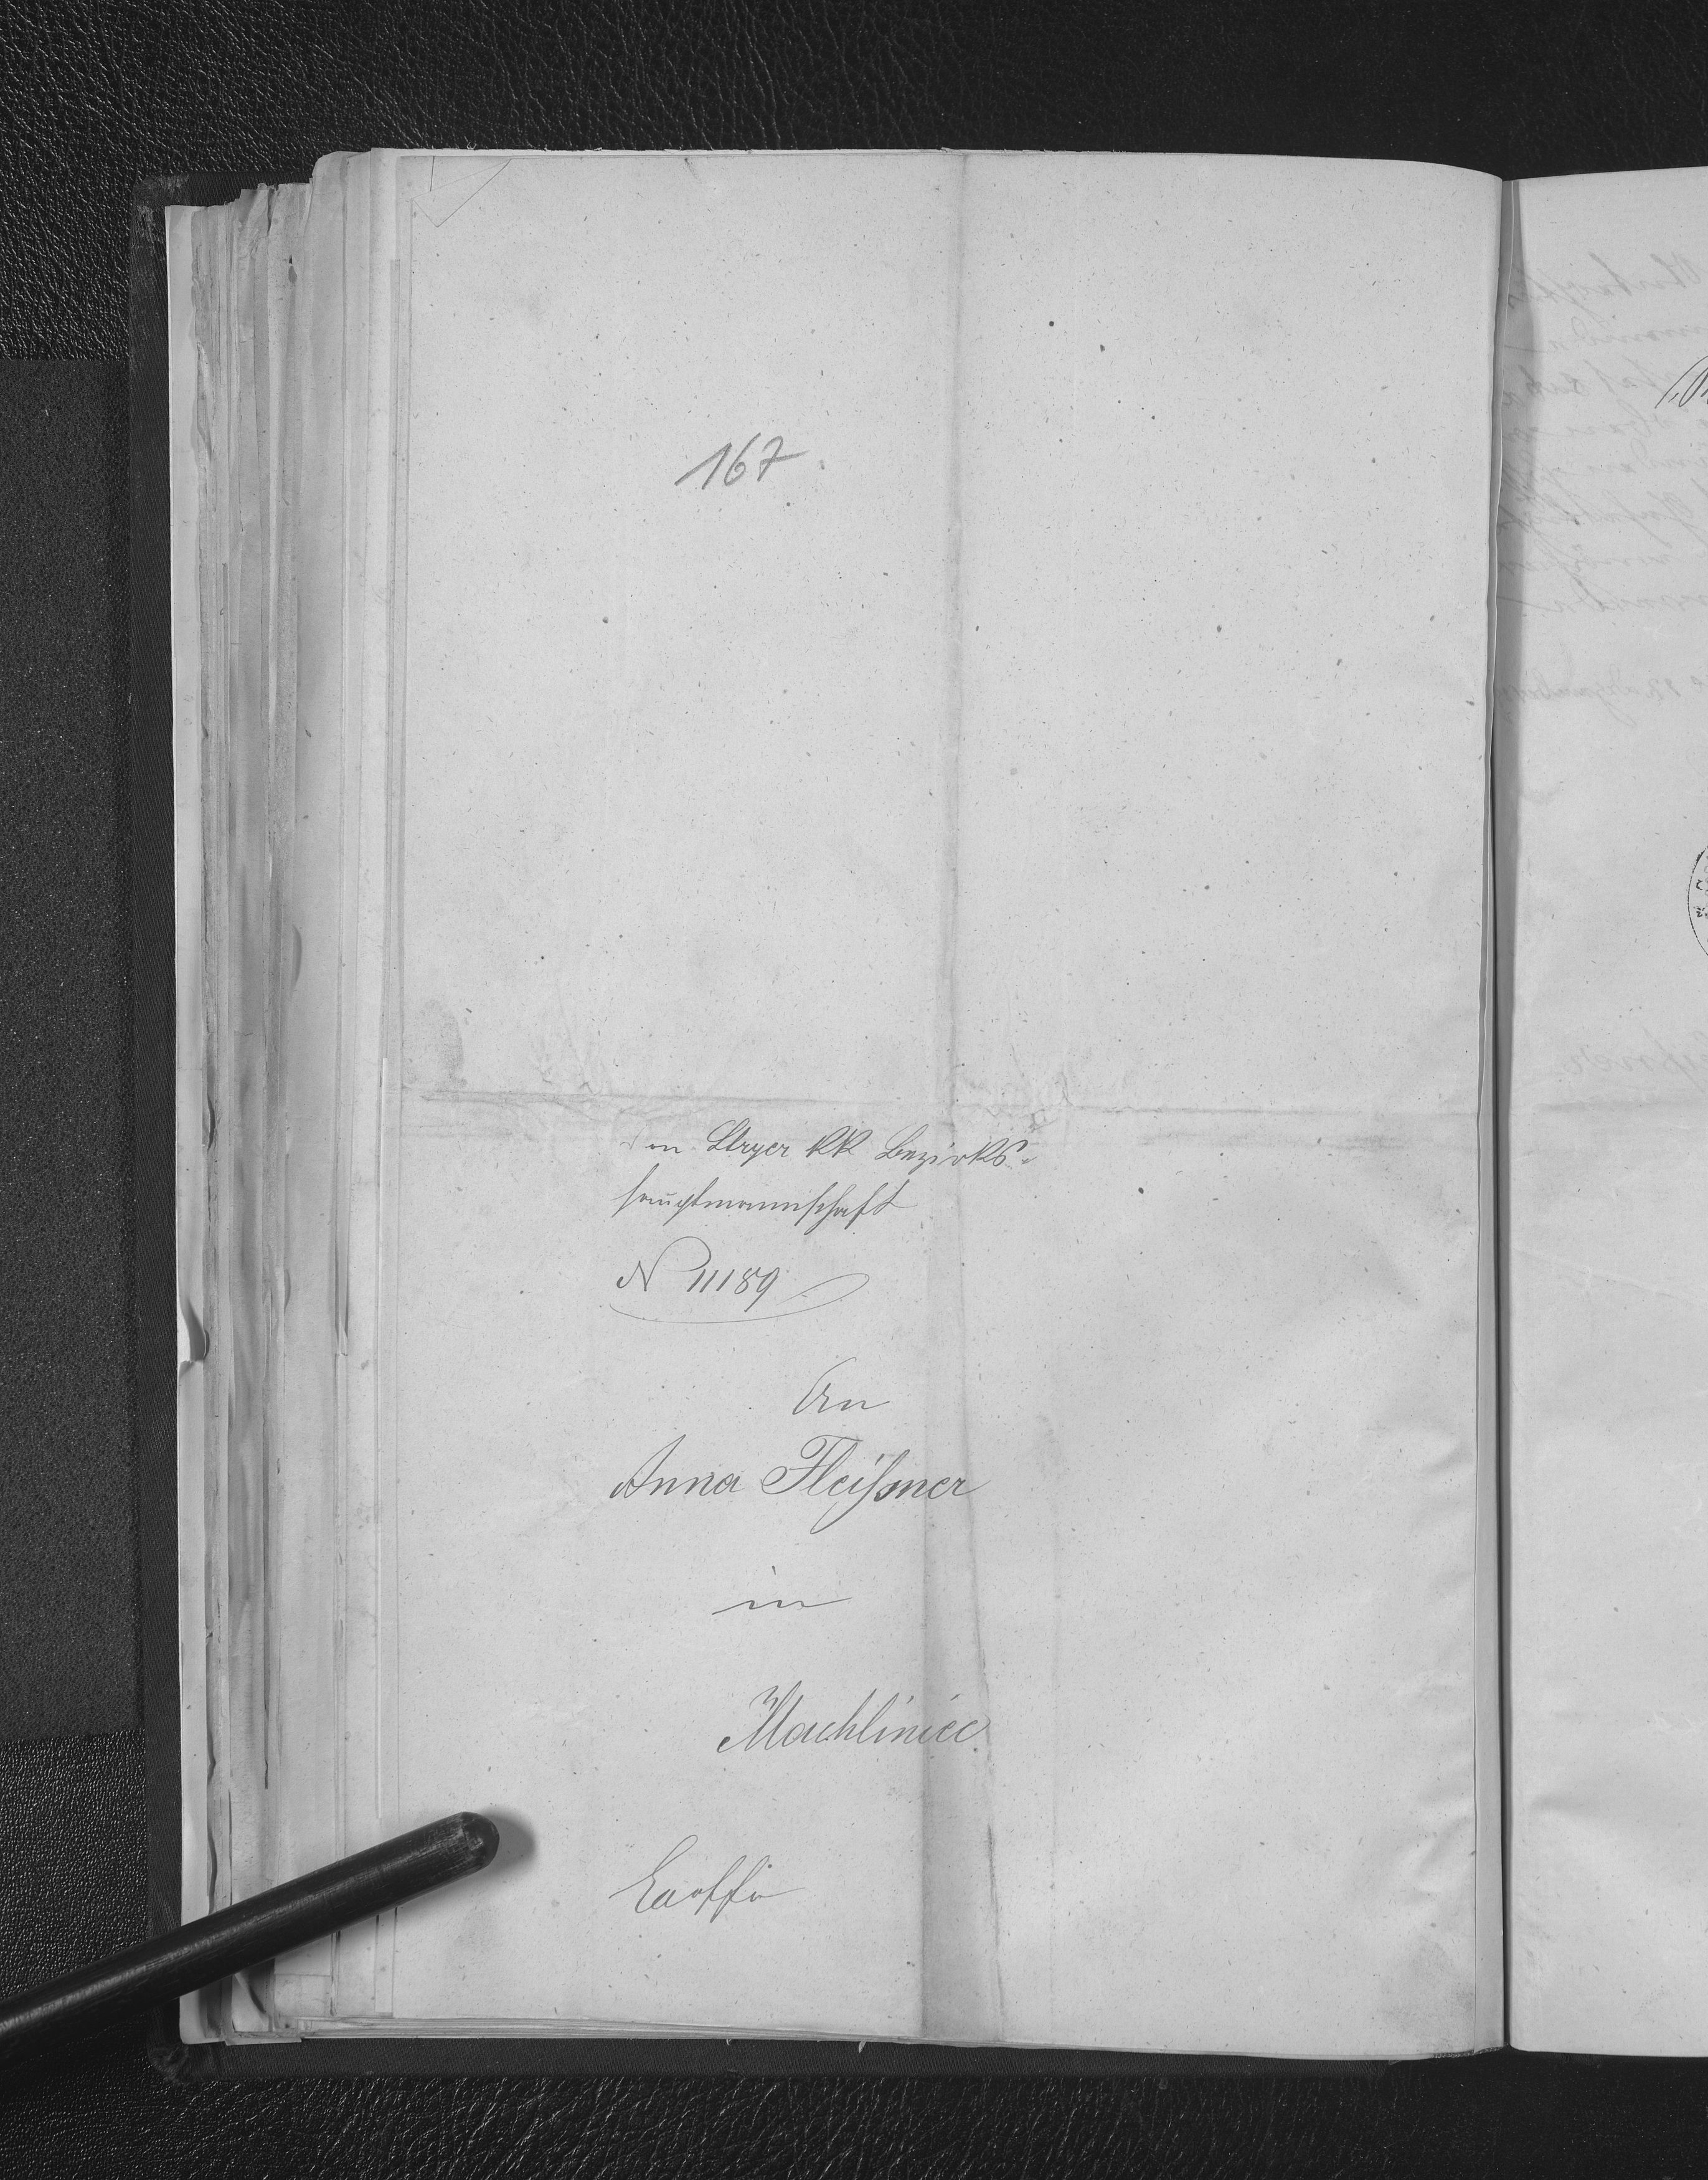 167
Von Stryer kk Bezirks-
hauptmannschaft
N 11189
An
Anna Fleißner
in
Machliniec